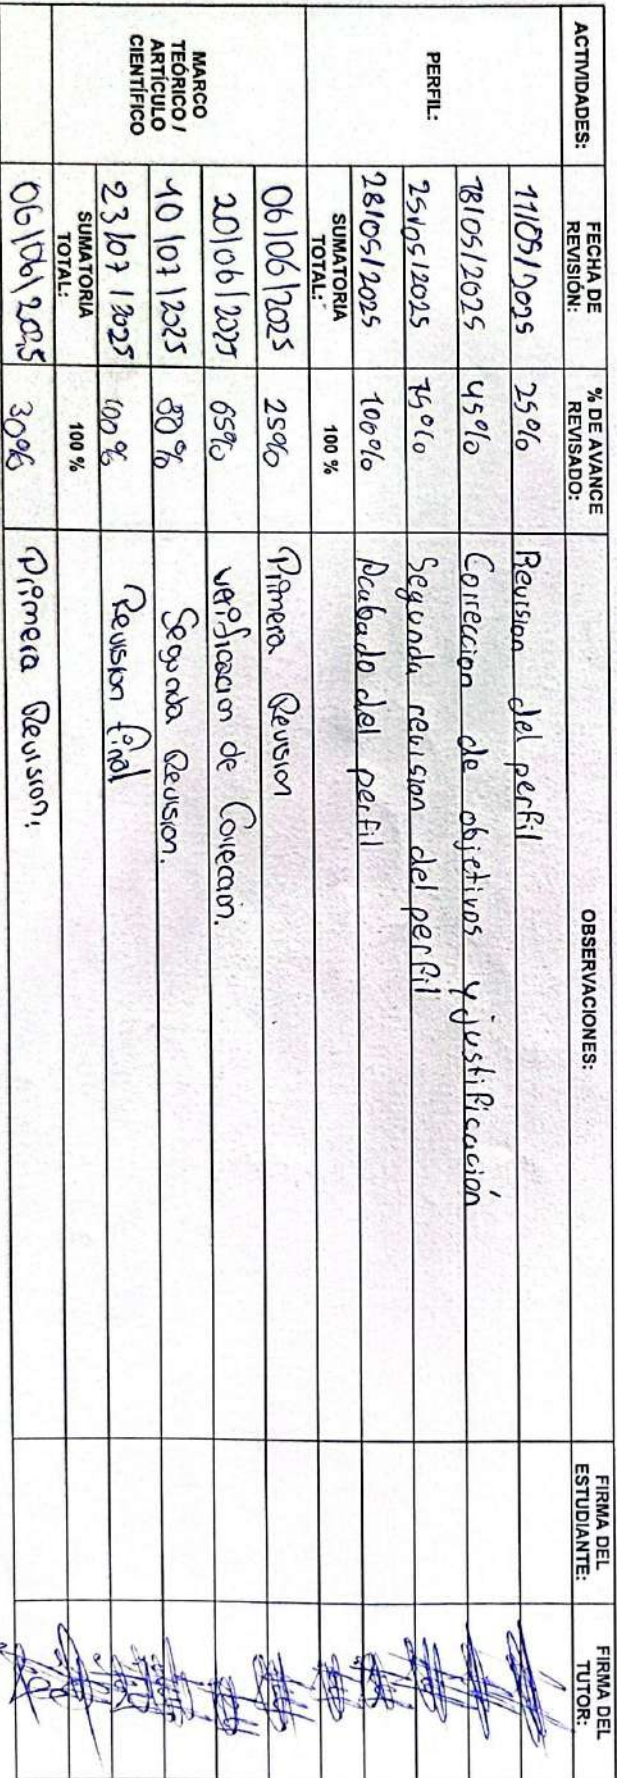 ACTIVIDADES: FECHA DE REVISIÓN: % DE AVANCE REVISADO: OBSERVACIONES: FIRMA DEL ESTUDIANTE: FIRMA DEL TUTOR:
PERFIL:
11/05/2025 25% Revision del perfil
18/05/2025 45% Correccion de objetivos y justificación
25/05/2025 75% Segunda revision del perfil
28/05/2025 100% Acabado del perfil
SUMATORIA TOTAL: 100 %
MARCO TEÓRICO / ARTÍCULO CIENTÍFICO
06/06/2025 25% Primera Revision
20/06/2025 65% verificacion de Coreccion.
10/07/2025 80% Segunda Revision.
23/07/2025 100% Revision final
SUMATORIA TOTAL: 100 %
06/06/2025 30% Primera Revision.